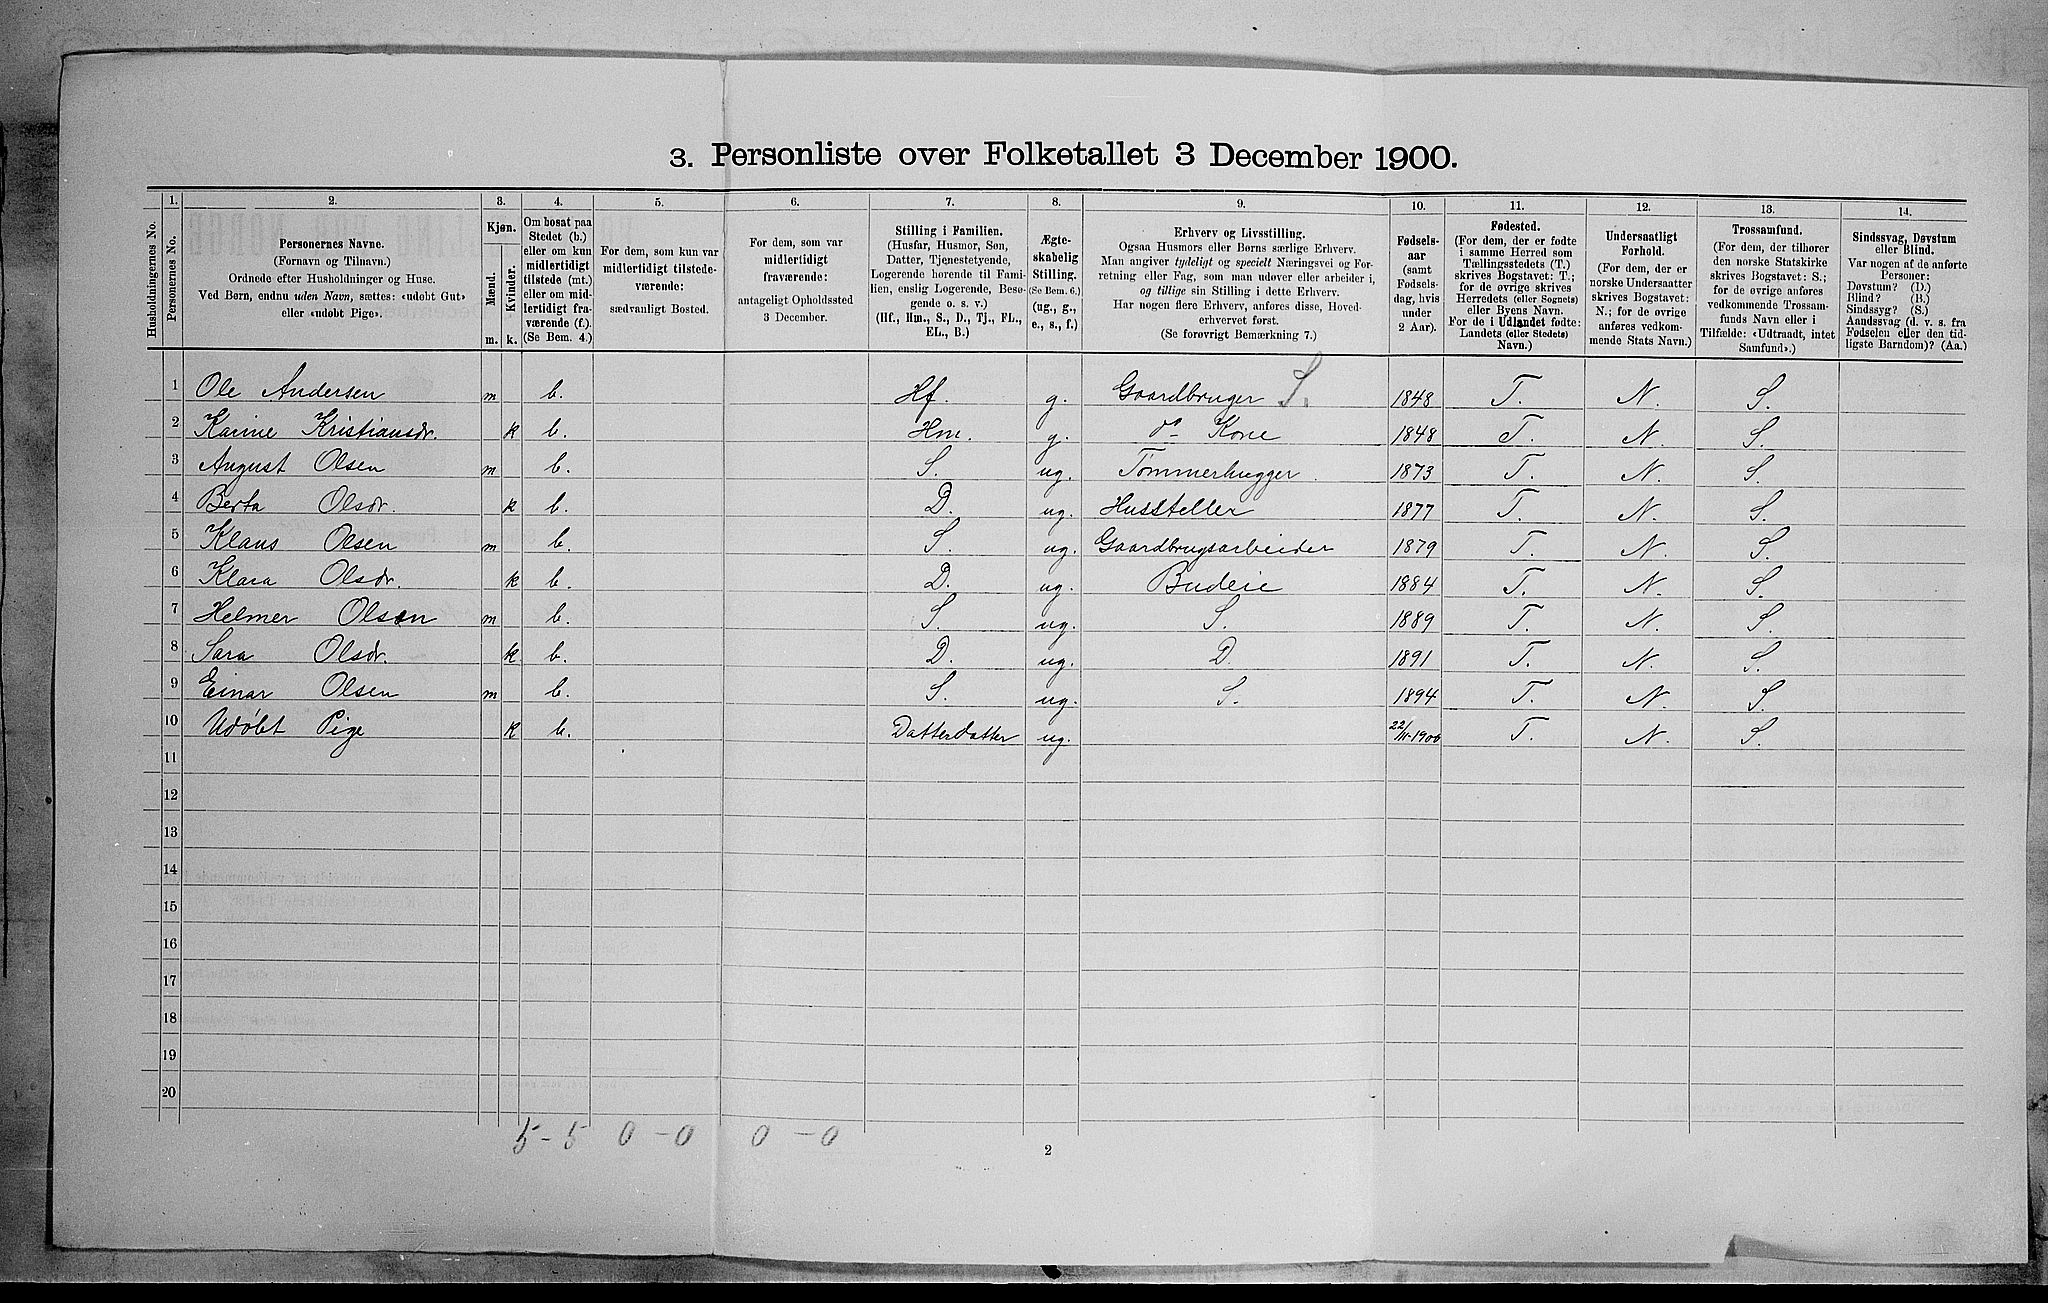 3. Personliste over Folketallet 3 December 1900.
1. 2. 3. 4. 5. 6. 7. 8. 9. 10. 11. 12. 13. 14.
Husholdningernes No.
Personernes No.
Personernes Navne.
(Fornavn og Tilnavn.)
Ordnede efter Husholdninger og Huse.
Ved Børn, endnu uden Navn, sættes: «udøbt Gut»
eller «udøbt Pige».
Kjøn.
Mænd.
Kvinder.
m. k.
Om bosat paa
Stedet (b.)
eller om kun
midlertidigt
tilstede (mt.)
eller om mid-
lertidigt fra-
værende (f.).
(Se Bem. 4.)
For dem, som kun var
midlertidigt tilstede-
værende:
sædvanligt Bosted.
For dem, som var
midlertidigt
fraværende:
antageligt Opholdssted
3 December.
Stilling i Familien.
(Husfar, Husmor, Søn,
Datter, Tjenestetyende,
Logerende hørende til Fami-
lien, enslig Logerende, Besø-
gende o. s. v.)
(Hf., Hm., S., D., Tj., FL.,
EL., B.)
Ægte-
skabelig
Stilling.
(Se Bem. 6.)
(ug., g.,
e., s., f.)
Erhverv og Livsstilling.
Ogsaa Husmors eller Børns særlige Erhverv.
Man angiver tydeligt og specielt Næringsvei og For-
retning eller Fag, som man udøver eller arbeider i,
og tillige sin Stilling i dette Erhverv.
Har nogen flere Erhverv, anføres disse, Hoved-
erhvervet først.
(Se forøvrigt Bemærkning 7.)
Fødsels-
aar
(samt
Fødsels-
dag, hvis
under
2 Aar).
Fødested.
(For dem, der er fødte
i samme Herred som
Tællingsstedets (T.)
skrives Bogstavet: T.;
for de øvrige skrives
Herredets (eller Sognets)
eller Byens Navn.
For de i Udlandet fødte:
Landets (eller Stedets)
Navn.)
Undersaatligt
Forhold.
(For dem, der er
norske Undersaatter
skrives Bogstavet:
N.; for de øvrige
anføres vedkom-
mende Stats Navn.)
Trossamfund.
(For dem, der tilhører
den norske Statskirke
skrives Bogstavet: S.;
for de øvrige anføres
vedkommende Trossam-
funds Navn eller i
Tilfælde: «Udtraadt, intet
Samfund».)
Sindssvag, Døvstum
eller Blind.
Var nogen af de anførte
Personer:
Døvstum? (D.)
Blind? (B.)
Sindssyg? (S.)
Aandssvag (d. v. s. fra
Fødselen eller den tid-
ligste Barndom)? (Aa.)
1 Ole Andersen m b. Hf. g. Gaardbruger S. 1848 T. N. S.
2 Karine Kristiansdr. k b. Hm. g. do Kone 1848 T. N. S.
3 August Olsen m b. S. ug. Tømmerhugger. 1873 T. N. S.
4 Berta Olsdr. k b. D. ug. Hussteller 1877 T. N. S.
5 Klaus Olsen m b. S. ug. Gaardbrugsarbeider 1879 T. N. S.
6 Klara Olsdr. k b. D. ug. Budeie 1884 T. N. S.
7 Helmer Olsen m b. S. ug. S. 1889 T. N. S.
8 Sara Olsdr. k b. D. ug. D. 1891 T. N. S.
9 Einar Olsen m b. S. ug. S. 1894 T. N. S.
10 Udøbt Pige k b. Datterdatter ug. 22/11-1900 T. N. S.
11
12
13
14
15
16
17
18
19
20
5 - 5 0 - 0 0 - 0
2